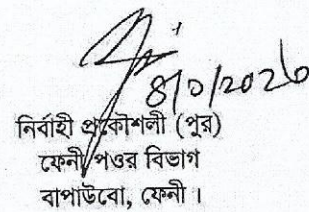 নির্বাহী প্রকৌশলী (পুর)
ফেনী পওর বিভাগ
বাপাউবো, ফেনী ।